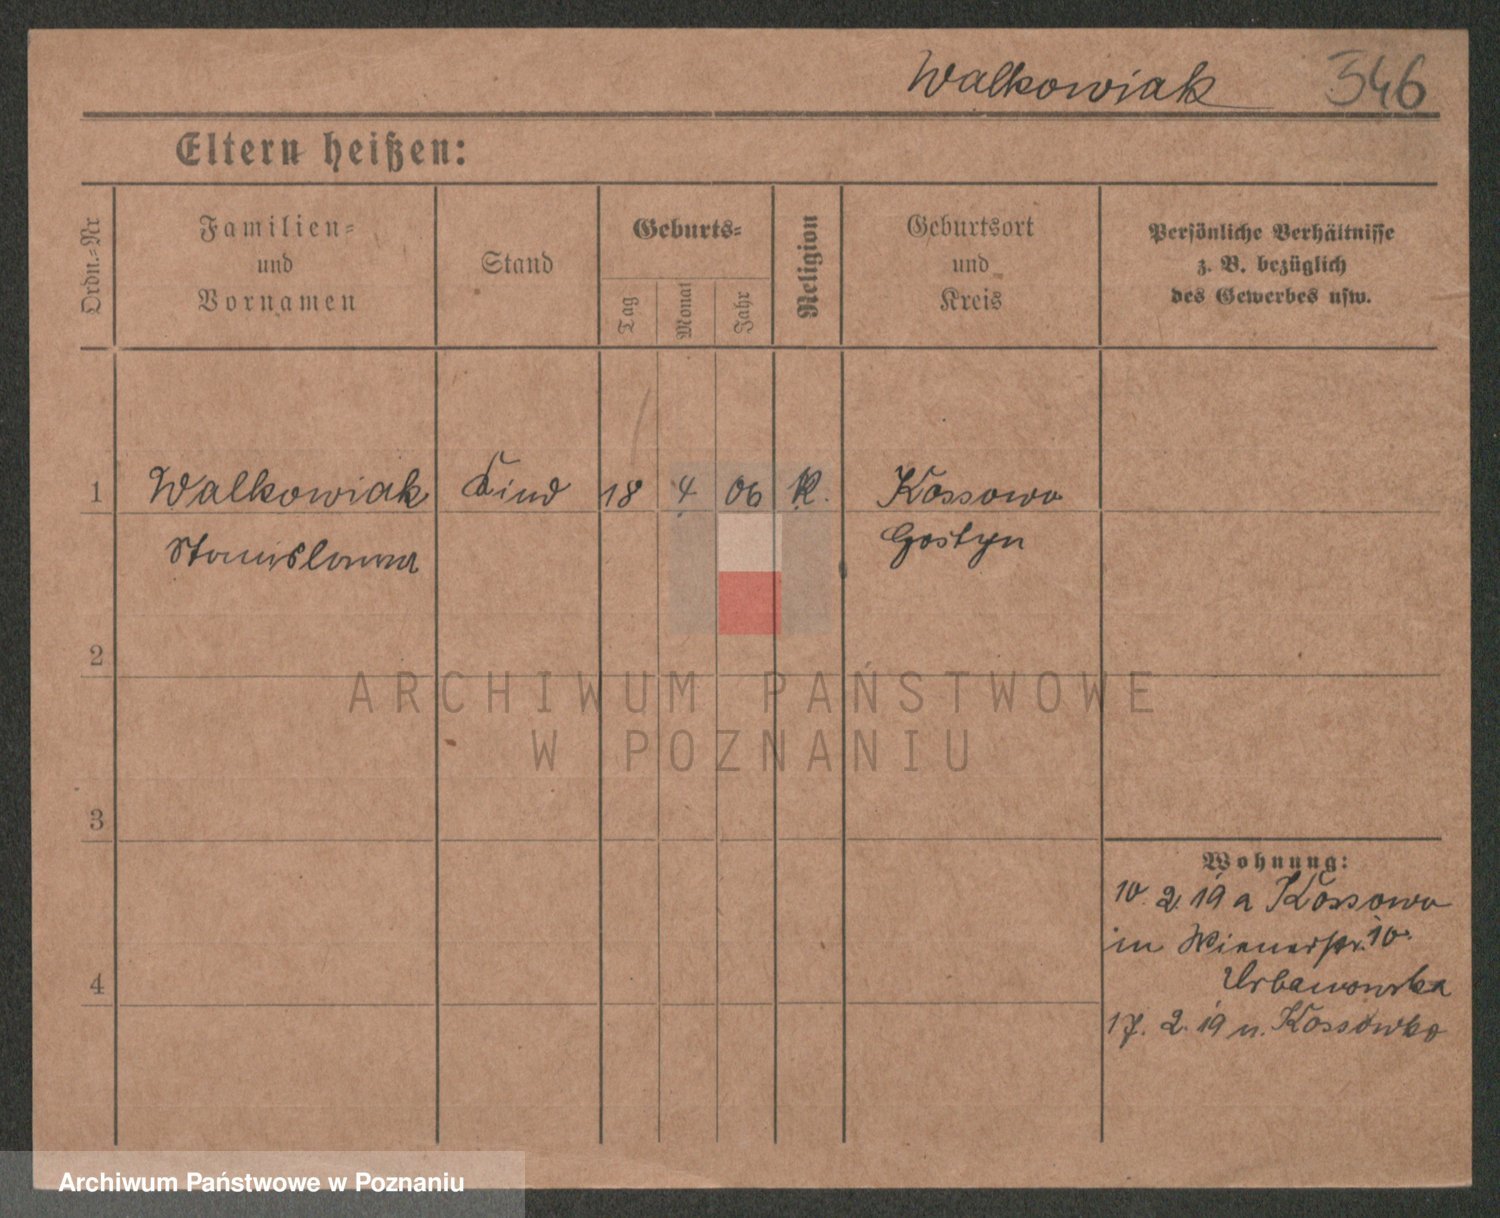 Walkowiak 346
Eltern heißen:
Ordn.-Nr
Familien-
und
Vornamen
Stand
Geburts-
Tag
Monat
Jahr
Religion
Geburtsort
und
Kreis
Persönliche Verhältnisse
z. B. bezüglich
des Gewerbes usw.
1 Walkowiak Kind 18 4 06 K. Kossowo
Stanislawa Gostyn
2
ARCHIWUM PAŃSTWOWE
W POZNANIU
3
Wohnung:
10. 2. 19 a Kossowo
in Wienerstr. 10.
4
Urbanowska
17. 2. 19 n. Kossowko
Archiwum Państwowe w Poznaniu